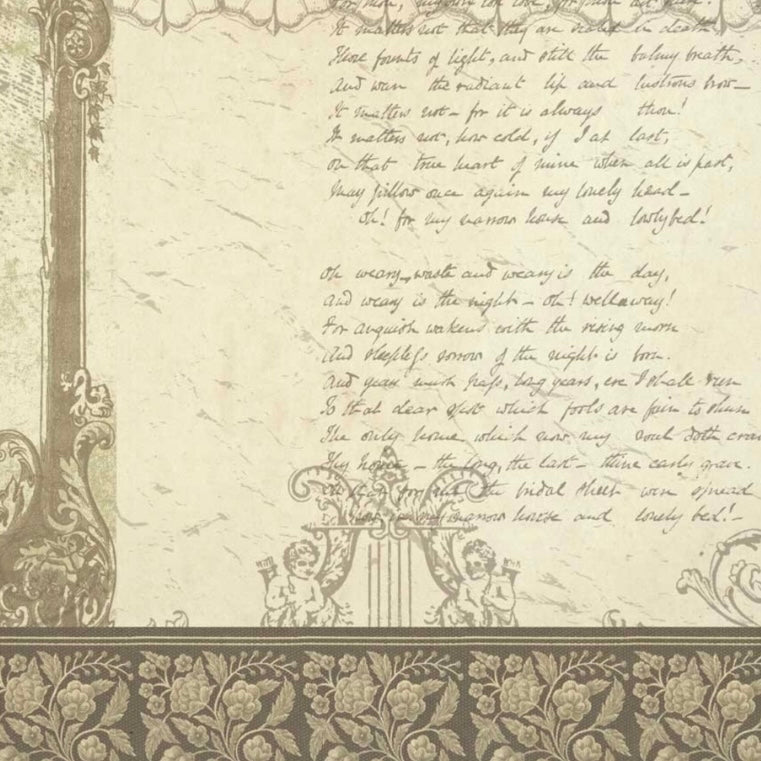 It matters not that they are sealed in death
Those founts of light, and still the balmy breath,
And wan the radiant lip and lustrous brow—
It matters not — for it is always thou!
It matters not, how cold, if I at last,
On that true heart of mine when all is past,
May pillow once again my lonely head —
Oh! for thy narrow house and lowly bed!
Oh weary, waste and weary is the day,
And weary is the night — oh! wellaway!
For anguish wakens with the rising morn
And sleepless sorrow of the night is born.
And years must pass, long years, ere I shall run
To that dear spot which fools are fain to shun
The only home which now my soul doth crave
Thy home — the long, the last — thine early grave.
the bridal sheet were spread
narrow house and lonely bed! —